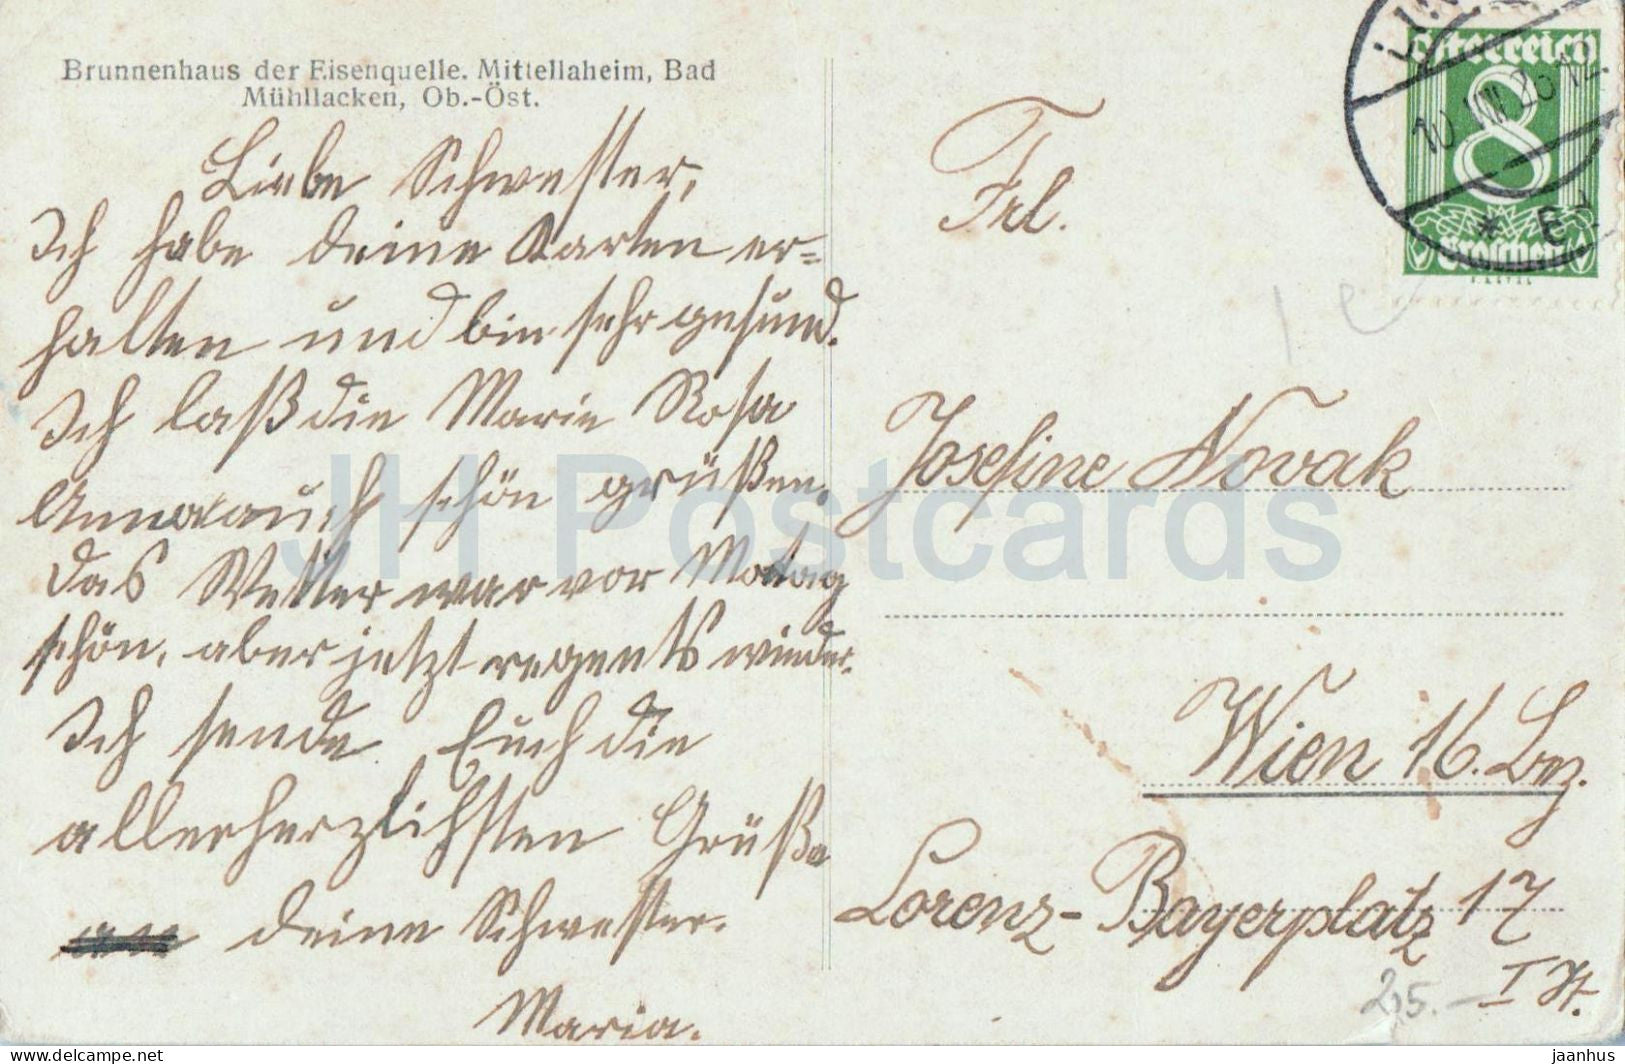 Brunnenhaus der Eisenquelle. Mittellaheim, Bad
Mühllacken, Ob.-Öst.
Liebe Schwester,
Ich habe deine Karten er=
halten und bin sehr gesund.
Ich laß die Marie Rosa
Anna auch schön grüßen.
Das Wetter war vor Motag
schön, aber jetzt regents wieder.
Ich sende Euch die
allerherzlichsten Grüße
deine Schwester.
Maria.
Frl.
Josefine Novak
Wien 16. Bez.
Lorenz-Bayerplatz 17
I St.
25.-
Österreich
8
Groschen
10 VIII 26 12
* E *
JH Postcards
delcampe.net
jaanhus